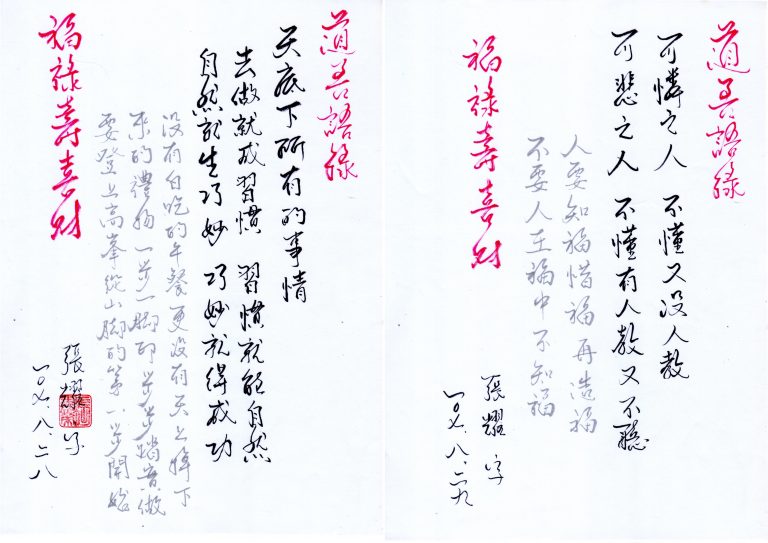 道善語錄
天底下所有的事情
去做就成習慣 習慣就能自然
自然就生巧妙 巧妙就得成功
没有白吃的午餐更没有天上掉下
來的禮物一步一腳印步步踏實做
要登上高峯從山腳的第一步開始
福祿壽喜財
張耀 字
一〇七、八、二八
道善語錄
可憐之人 不懂又没人教
可悲之人 不懂有人教又不聽
人要知福惜福再造福
不要人在福中不知福
福祿壽喜財
張耀 字
一〇七、八、二九